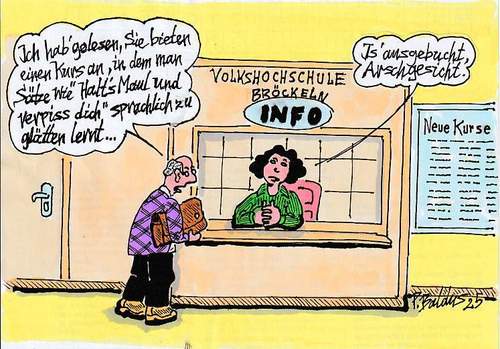 Ich hab' gelesen, Sie bieten
einen Kurs an, in dem man
Sätze wie "Halt's Maul und
verpiss dich," sprachlich zu
glätten lernt...
Is' ausgebucht,
Arschgesicht.
VOLKSHOCHSCHULE
BRÖCKELN
INFO
Neue Kurse
25